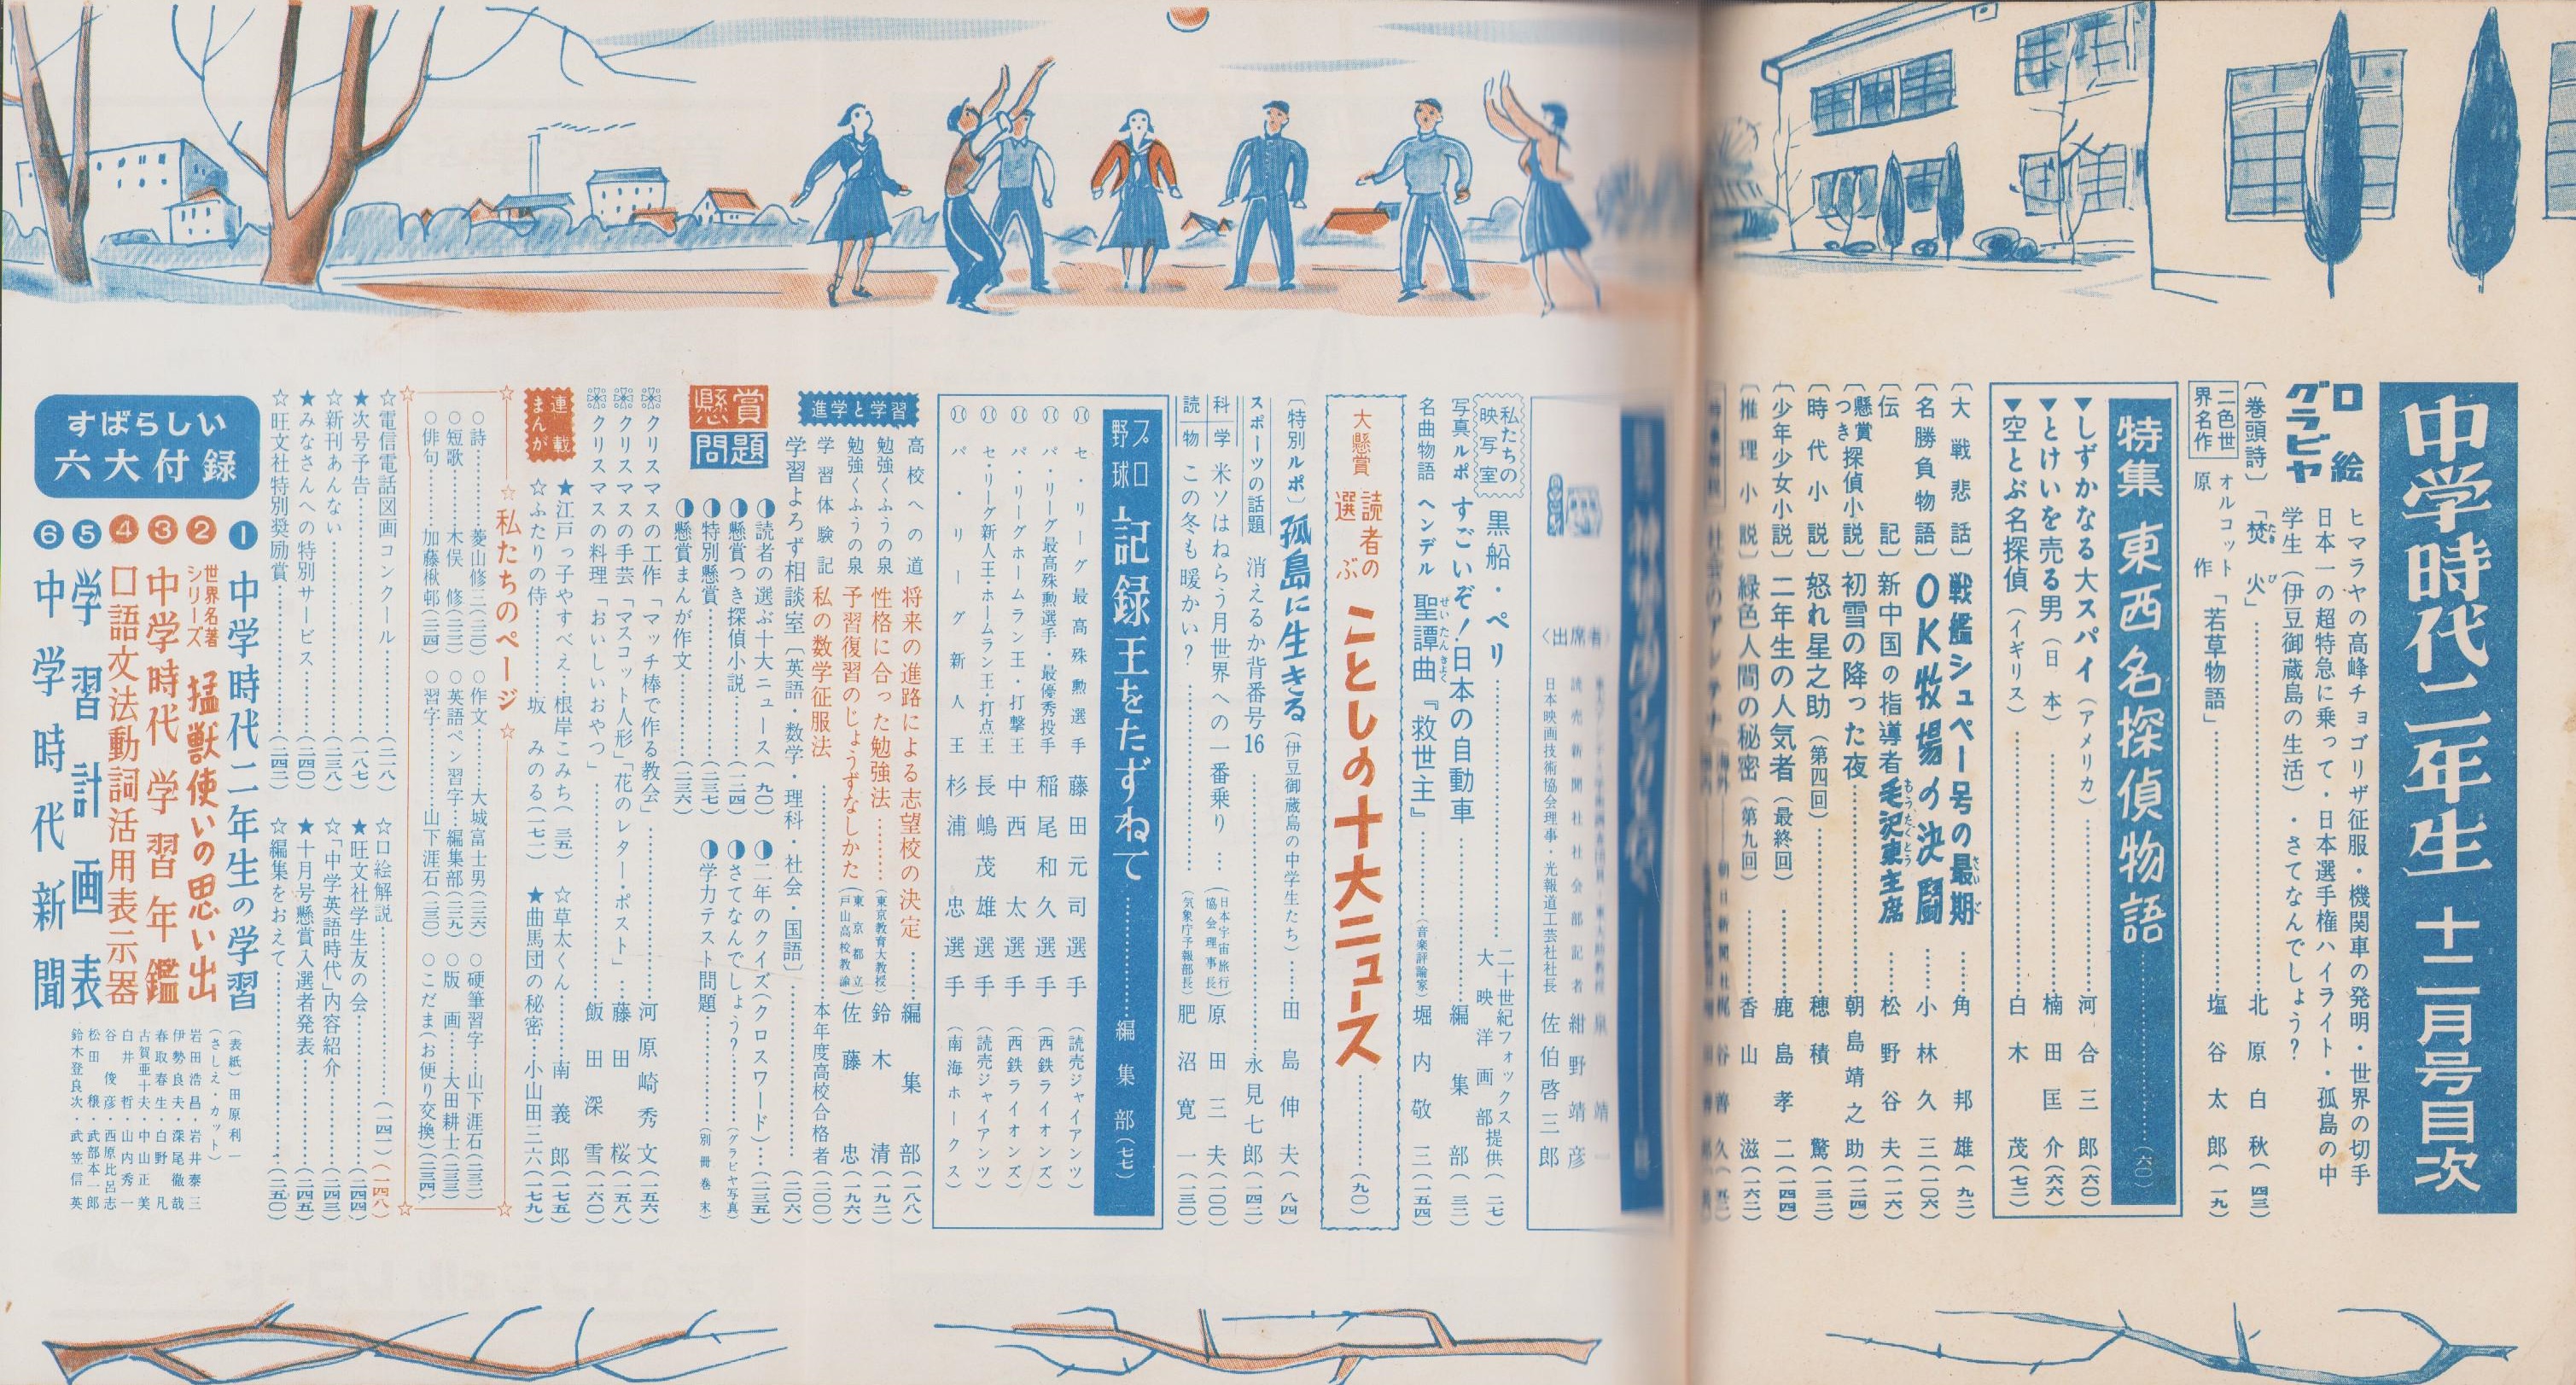 中学時代二年生 十二月号目次
口絵
グラビヤ
ヒマラヤの高峰チョゴリザ征服・機関車の発明・世界の切手
日本一の超特急に乗って・日本選手権ハイライト・孤島の中
学生（伊豆御蔵島の生活）・さてなんでしょう？
〔巻頭詩〕「焚火」 北原白秋（四三）
二色世界名作 オルコット原作「若草物語」 塩谷太郎（一九）
特集 東西名探偵物語（六〇）
▼しずかなる大スパイ（アメリカ） 河合三郎（六〇）
▼とけいを売る男（日本） 楠田匡介（六六）
▼空とぶ名探偵（イギリス） 白木茂（七二）
〔大戦悲話〕戦艦シュペー号の最期 角邦雄（九二）
〔名勝負物語〕OK牧場の決闘 小林久三（一〇六）
〔伝記〕新中国の指導者毛沢東主席 松野谷夫（一一六）
〔懸賞つき探偵小説〕初雪の降った夜 朝島靖之助（一二四）
〔時代小説〕怒れ星之助（第四回） 穂積驚（一三二）
〔少年少女小説〕二年生の人気者（最終回） 鹿島孝二（一四四）
〔推理小説〕緑色人間の秘密（第九回） 香山滋（一六二）
〈出席者〉
読売新聞社社会部記者 紺野靖彦
日本映画技術協会理事・光報道工芸社社長 佐伯啓三郎
私たちの映写室 黒船・ペリ 二十世紀フォックス 大映洋画部提供（二七）
写真ルポ すごいぞ！日本の自動車 編集部（三二）
名曲物語 ヘンデル 聖譚曲『救世主』（音楽評論家）堀内敬三（一五四）
大懸賞 読者の選ぶ ことしの十大ニュース（九〇）
〔特別ルポ〕孤島に生きる（伊豆御蔵島の中学生たち） 田島伸夫（八四）
スポーツの話題 消えるか背番号16 永見七郎（一四二）
科学 米ソはねらう月世界への一番乗り（日本宇宙旅行協会理事長）原田三夫（一〇〇）
読物 この冬も暖かい？（気象庁予報部長）肥沼寛一（一三〇）
プロ野球 記録王をたずねて 編集部（七七）
セ・リーグ最高殊勲選手 藤田元司選手（読売ジャイアンツ）
パ・リーグ最高殊勲選手・最優秀投手 稲尾和久選手（西鉄ライオンズ）
パ・リーグホームラン王・打撃王 中西太選手（西鉄ライオンズ）
セ・リーグ新人王・ホームラン王・打点王 長嶋茂雄選手（読売ジャイアンツ）
パ・リーグ新人王 杉浦忠選手（南海ホークス）
進学と学習
高校への道 将来の進路による志望校の決定 編集部（一八八）
勉強くふうの泉 性格に合った勉強法（東京教育大教授）鈴木清（一九二）
勉強くふうの泉 予習復習のじょうずなしかた（東京都立戸山高校教諭）佐藤忠（一九六）
学習体験記 私の数学征服法 本年度高校合格者（二〇〇）
学習よろず相談室〔英語・数学・理科・社会・国語〕（二〇六）
懸賞問題
読者の選ぶ十大ニュース（九〇）
懸賞つき探偵小説（一二四）
特別懸賞（二三七）
懸賞まんが作文（二三六）
二年のクイズ（クロスワード）（二三五）
さてなんでしょう？（グラビヤ写真）
学力テスト問題（別冊巻末）
クリスマスの工作「マッチ棒で作る教会」 河原崎秀文（一五六）
クリスマスの手芸「マスコット人形」「花のレター・ポスト」 藤田桜（一五八）
クリスマスの料理「おいしいおやつ」 飯田深雪（一六〇）
連載まんが
★江戸っ子やすべえ 根岸こみち（三五）
☆草太くん 南義郎（一七五）
☆ふたりの侍 坂みのる（一七一）
★曲馬団の秘密 小山田三六（一七九）
☆私たちのページ☆
○詩 菱山修三（二三〇） ○作文 大城富士男（二二六） ○硬筆習字 山下涯石（二三二）
○短歌 木俣修（二三二） ○英語ペン習字 編集部（二二九） ○版画 大田耕士（二三三）
○俳句 加藤楸邨（二三四） ○習字 山下涯石（二三〇） ○こだま（お便り交換）（二三四）
☆電信電話図画コンクール（二一八） ☆口絵解説（一四一）（一四八）
★次号予告（一八七） ★旺文社学生友の会（二四四）
☆新刊あんない（二三八） ☆「中学英語時代」内容紹介（二四三）
★みなさんへの特別サービス（二四〇） ★十月号懸賞入選者発表（二四五）
☆旺文社特別奨励賞（二四二） ☆編集をおえて（二五〇）
すばらしい六大付録
①中学時代二年生の学習
②世界名著シリーズ 猛獣使いの思い出
③中学時代 学習年鑑
④口語文法動詞活用表示器
⑤学習計画表
⑥中学時代新聞
（表紙）田原利一
（さしえ・カット）
岩田浩昌・岩井泰三
伊勢良夫・深尾徹哉
春取春生・白野凡
古賀亜十夫・中山正美
白井哲・山内秀一
谷俊彦・西原比呂志
松田穣・武部本一郎
鈴木登良次・武笠信英